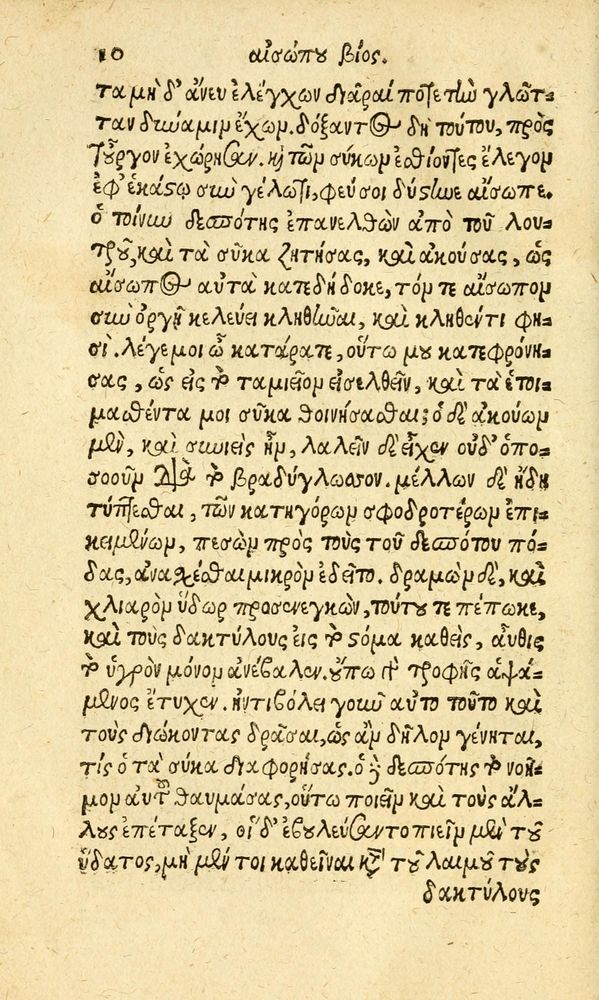 10 αἰσώπου βίος.
τα μηδ' ἄνευ ἐλέγχων διᾶραί ποτε τὴν γλῶτ-
ταν δυνάμιν ἔχων. δόξαντος δὴ τούτου, πρὸς
τοὖργον ἐχώρησαν. καὶ τῶν σύκων ἐσθίοντες ἔλεγον
ἐφ' ἑκάστῳ σὺν γέλωτι, φεῦ σοι δύστηνε αἴσωπε.
ὁ τοίνυν δεσπότης ἐπανελθὼν ἀπὸ τοῦ λου-
τροῦ, καὶ τὰ σῦκα ζητήσας, καὶ ἀκούσας, ὡς
αἴσωπος αὐτὰ κατεδήδοκε, τόν τε αἴσωπον
σὺν ὀργῇ κελεύει κληθῆναι, καὶ κληθέντι φη-
σί. λέγε μοι ὦ κατάρατε, οὕτω μου κατεφρόνη-
σας, ὡς εἰς τὸ ταμιεῖον εἰσελθεῖν, καὶ τὰ ἑτοι-
μασθέντα μοι σῦκα θοινήσασθαι; ὁ δὲ ἀκούων
μὲν, καὶ συνιεὶς ἦν, λαλεῖν δὲ εἶχεν οὐδ' ὁπο-
σοοῦν διὰ τὸ βραδύγλωσσον. μέλλων δὲ ἤδη
τύπτεσθαι, τῶν κατηγόρων σφοδροτέρων ἐπι-
κειμένων, πεσὼν πρὸς τοὺς τοῦ δεσπότου πό-
δας, ἀνασχέσθαι μικρὸν ἐδεῖτο. δραμὼν δὲ, καὶ
χλιαρὸν ὕδωρ προσενεγκών, τοῦτό τε πέπωκε,
καὶ τοὺς δακτύλους εἰς τὸ στόμα καθεὶς, αὖθις
τὸ ὑγρὸν μόνον ἀνέβαλεν. οὔπω γὰρ τροφῆς ἁψά-
μενος ἔτυχεν. ἠντιβόλει γοῦν αὐτὸ τοῦτο καὶ
τοὺς διώκοντας δρᾶσαι, ὡς ἂν δῆλον γένηται,
τίς ὁ τὰ σῦκα διαφορήσας. ὁ δὲ δεσπότης τὸ νοῆ-
μον αὐτοῦ θαυμάσας, οὕτω ποιεῖν καὶ τοὺς ἄλ-
λους ἐπέταξεν, οἱ δ' ἐβουλεύσαντο πιεῖν μὲν τοῦ
ὕδατος, μὴ μέν τοι καθεῖναι κατὰ τοῦ λαιμοῦ τοὺς
δακτύλους